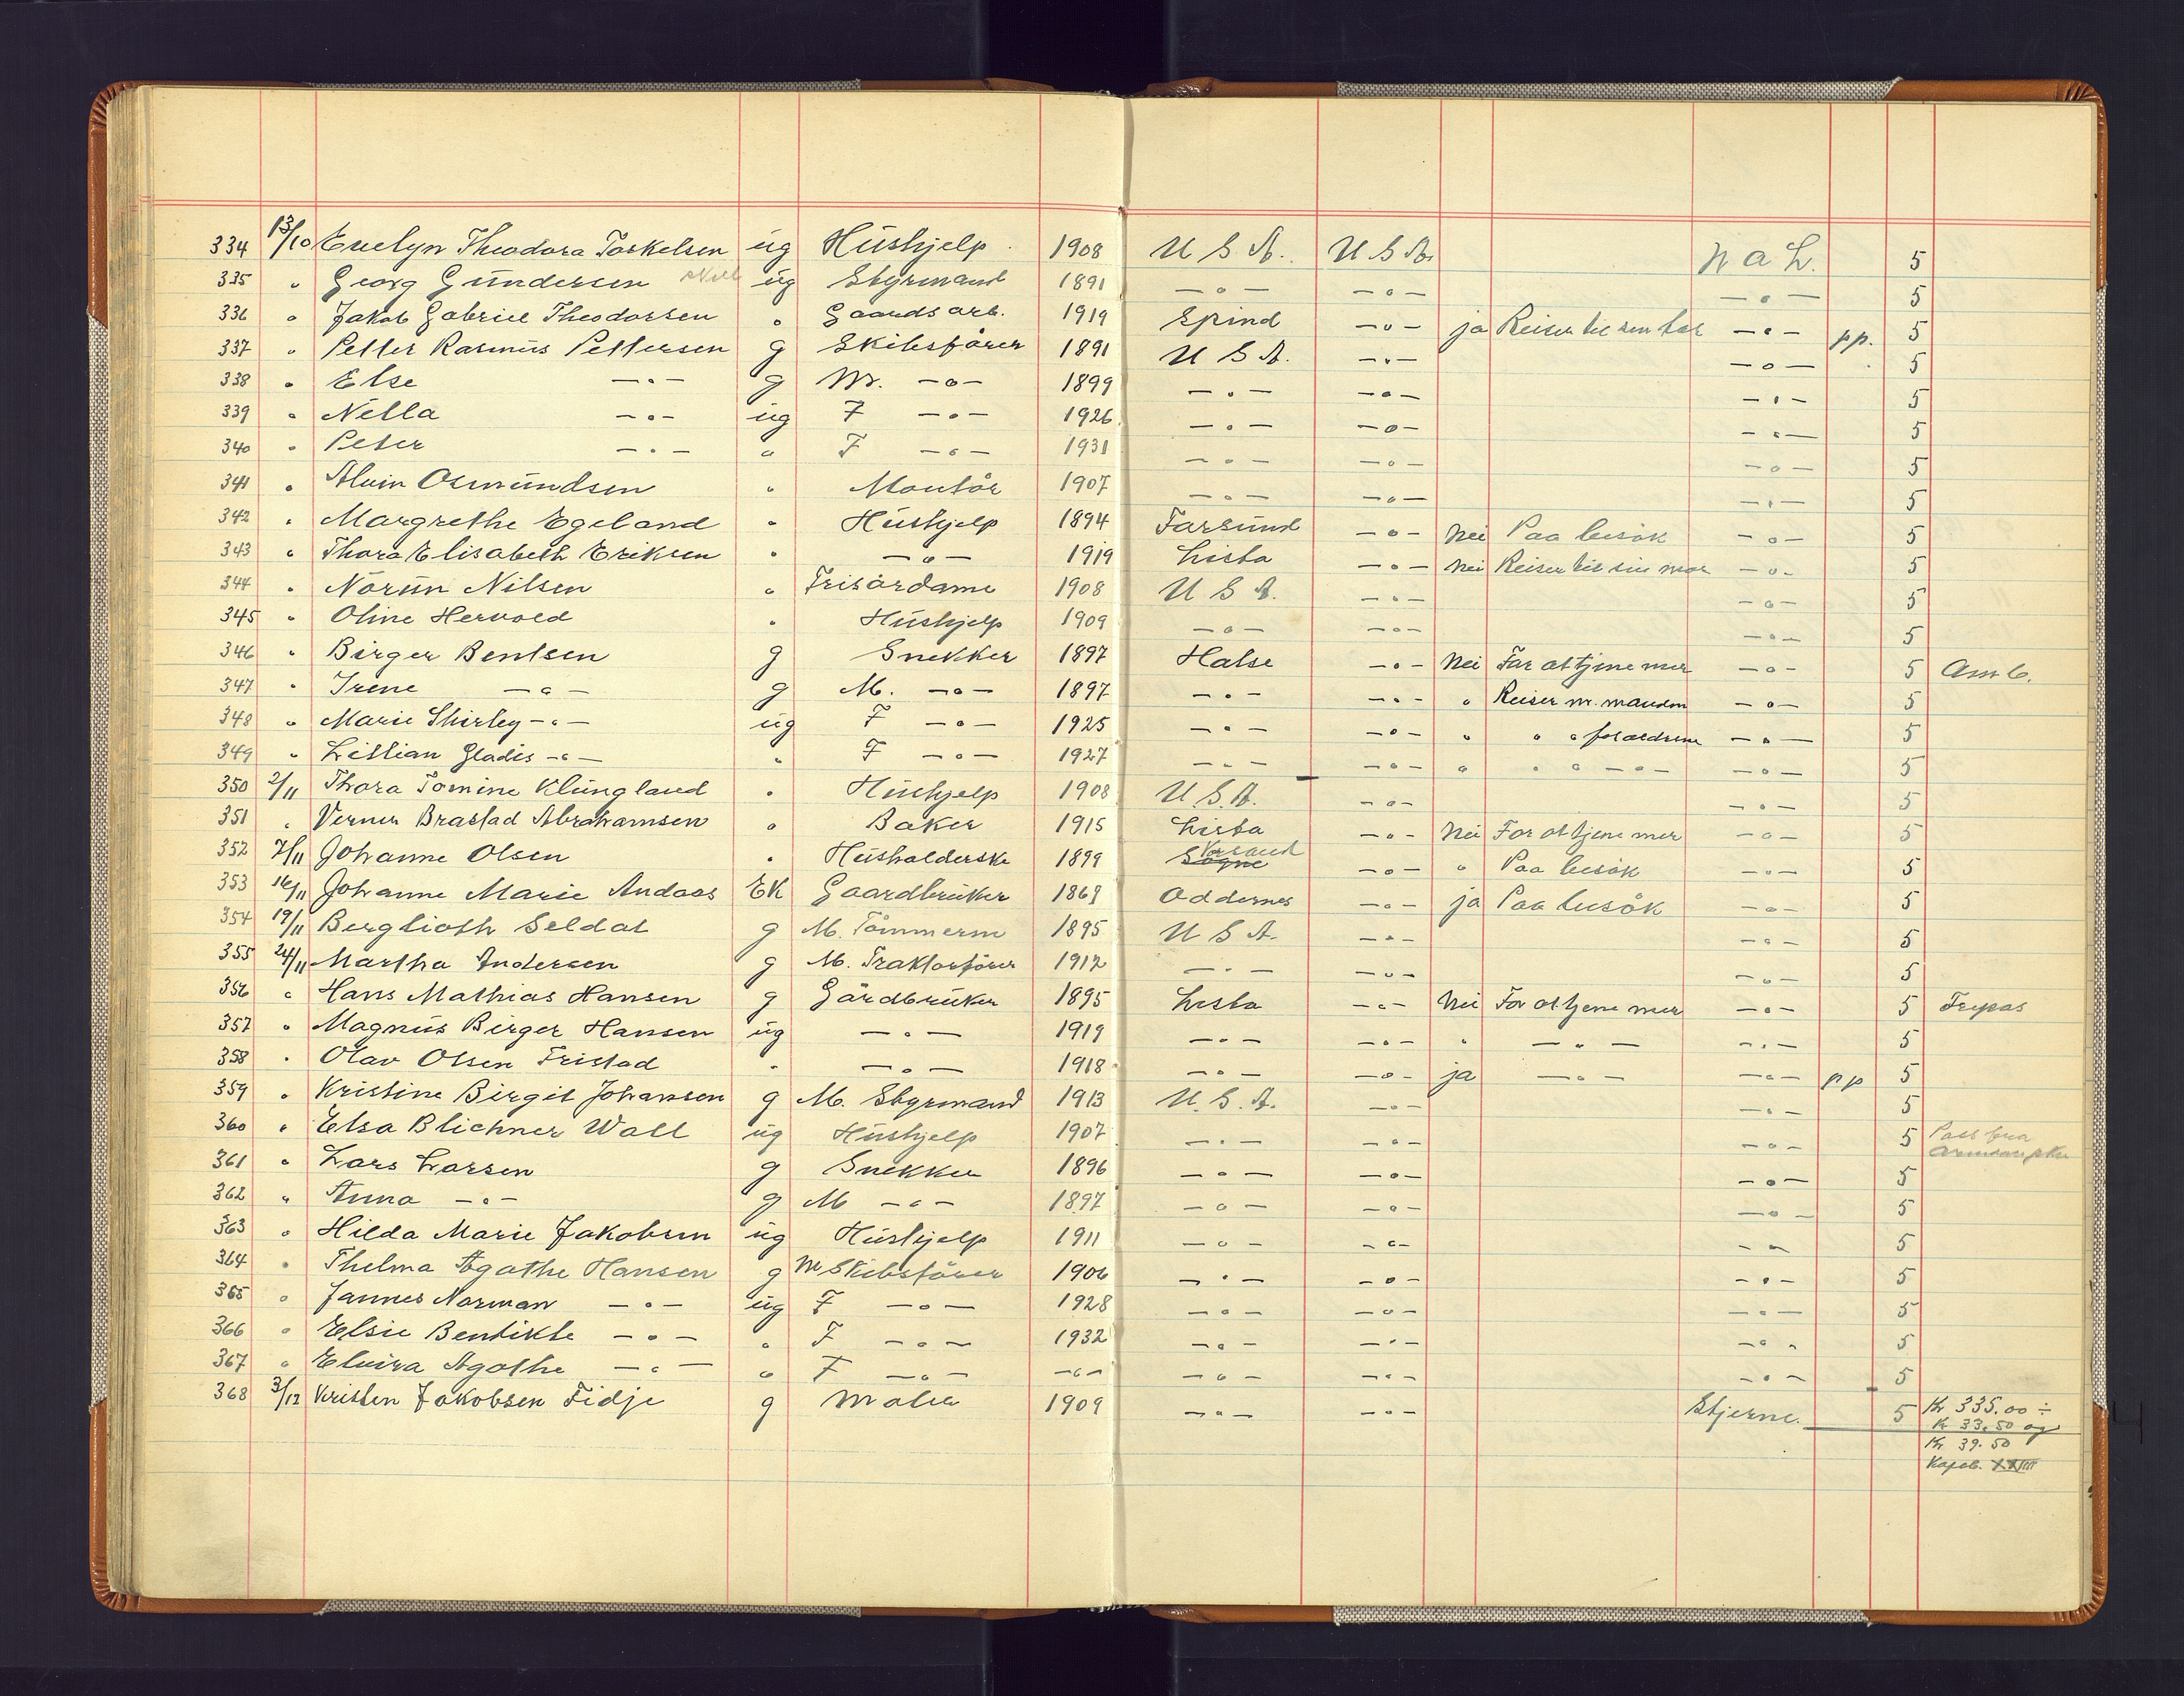 334 13/10 Evelyn Theodora Torkelsen ug Hüshjelp 1908 U S A. U S A. N a L. 5
335 " Georg Gündersen ug Styrmand 1891 -o- -o- -o- 5
336 " Jakob Gabriel Theodorsen " Gaardsarb. 1919 Spind -o- ja Reiser til sin far -o- pp. 5
337 " Petter Rasmüs Pettersen g Skibsförer 1891 U. S A. -o- -o- 5
338 " Else -o- g M. -o- 1899 -o- -o- -o- 5
339 " Nella -o- ug F -o- 1926 -o- -o- -o- 5
340 " Peter -o- " F -o- 1931 -o- -o- -o- 5
341 " Alvin Osmündsen " Montör 1907 -o- -o- -o- 5
342 " Margrethe Egeland " Hüshjelp 1894 Farsünd -o- Nei Paa besök -o- 5
343 " Thora Elisabeth Eriksen " -o- 1919 Lista -o- Nei Reiser til sin mor -o- 5
344 " Norün Nilsen " Frisördame 1908 U S A. -o- -o- 5
345 " Oline Hervold " Hüshjelp 1909 -o- -o- -o- 5
346 " Birger Bentsen g Snekker 1897 Halse -o- Nei For at tjene mer -o- 5 Am b.
347 " Irene -o- g M. -o- 1897 -o- -o- " Reiser m. manden -o- 5
348 " Marie Shirley -o- ug F -o- 1925 -o- -o- " " " foraldrene -o- 5
349 " Lillian Gladis -o- " F -o- 1927 -o- -o- " " " -o- -o- 5
350 2/11 Thora Tomine Klüngland " Hüshjelp 1908 U. S. A. -o- -o- 5
351 " Verner Brastad Abrahamsen " Baker 1915 Lista -o- Nei For at tjene mer -o- 5
352 7/11 Johanne Olsen " Hüsholderske 1899 Sögne Krsand -o- " Paa besök -o- 5
353 16/11 Johanne Marie Andaas EK Gaardbrüker 1869 Oddernes -o- ja Paa besök -o- 5
354 19/11 Berglioth Seldal g M. Tömmerm 1895 U S A. -o- -o- 5
355 24/11 Martha Andersen g M. Traktorförer 1912 -o- -o- -o- 5
356 " Hans Mathias Hansen g Gårdbrüker 1895 Lista -o- Nei For at tjene mer -o- 5 Frepas
357 " Magnüs Birger Hansen ug -o- 1919 -o- -o- " -o- -o- 5
358 " Olav Olsen Tristad " -o- 1918 -o- -o- ja -o- -o- pp 5
359 " Kristine Birgit Johansen g M. Styrmand 1913 U. S. A. -o- -o- 5
360 " Elsa Blichner Wall ug Hüshjelp 1907 -o- -o- -o- 5 Pass fra
361 " Lars Larsen g Snekker 1896 -o- -o- -o- 5
362 " Anna -o- g M -o- 1897 -o- -o- -o- 5
363 " Hilda Marie Jakobsen ug Hüshjelp 1911 -o- -o- -o- 5
364 " Thelma Agathe Hansen g M Skibsförer 1906 -o- -o- -o- 5
365 " Jannes Norman -o- ug F -o- 1928 -o- -o- -o- 5
366 " Elsie Bentikte -o- " F -o- 1932 -o- -o- -o- 5
367 " Elvira Agathe -o- " F -o- -o- -o- -o- -o- 5
368 3/12 Kristen Jakobsen Fidje g Maler 1909 -o- -o- Stjerne. 5 Kr 335.00 ÷
Kr 33.50 og
Kr. 39.50
Kapb. XXIII